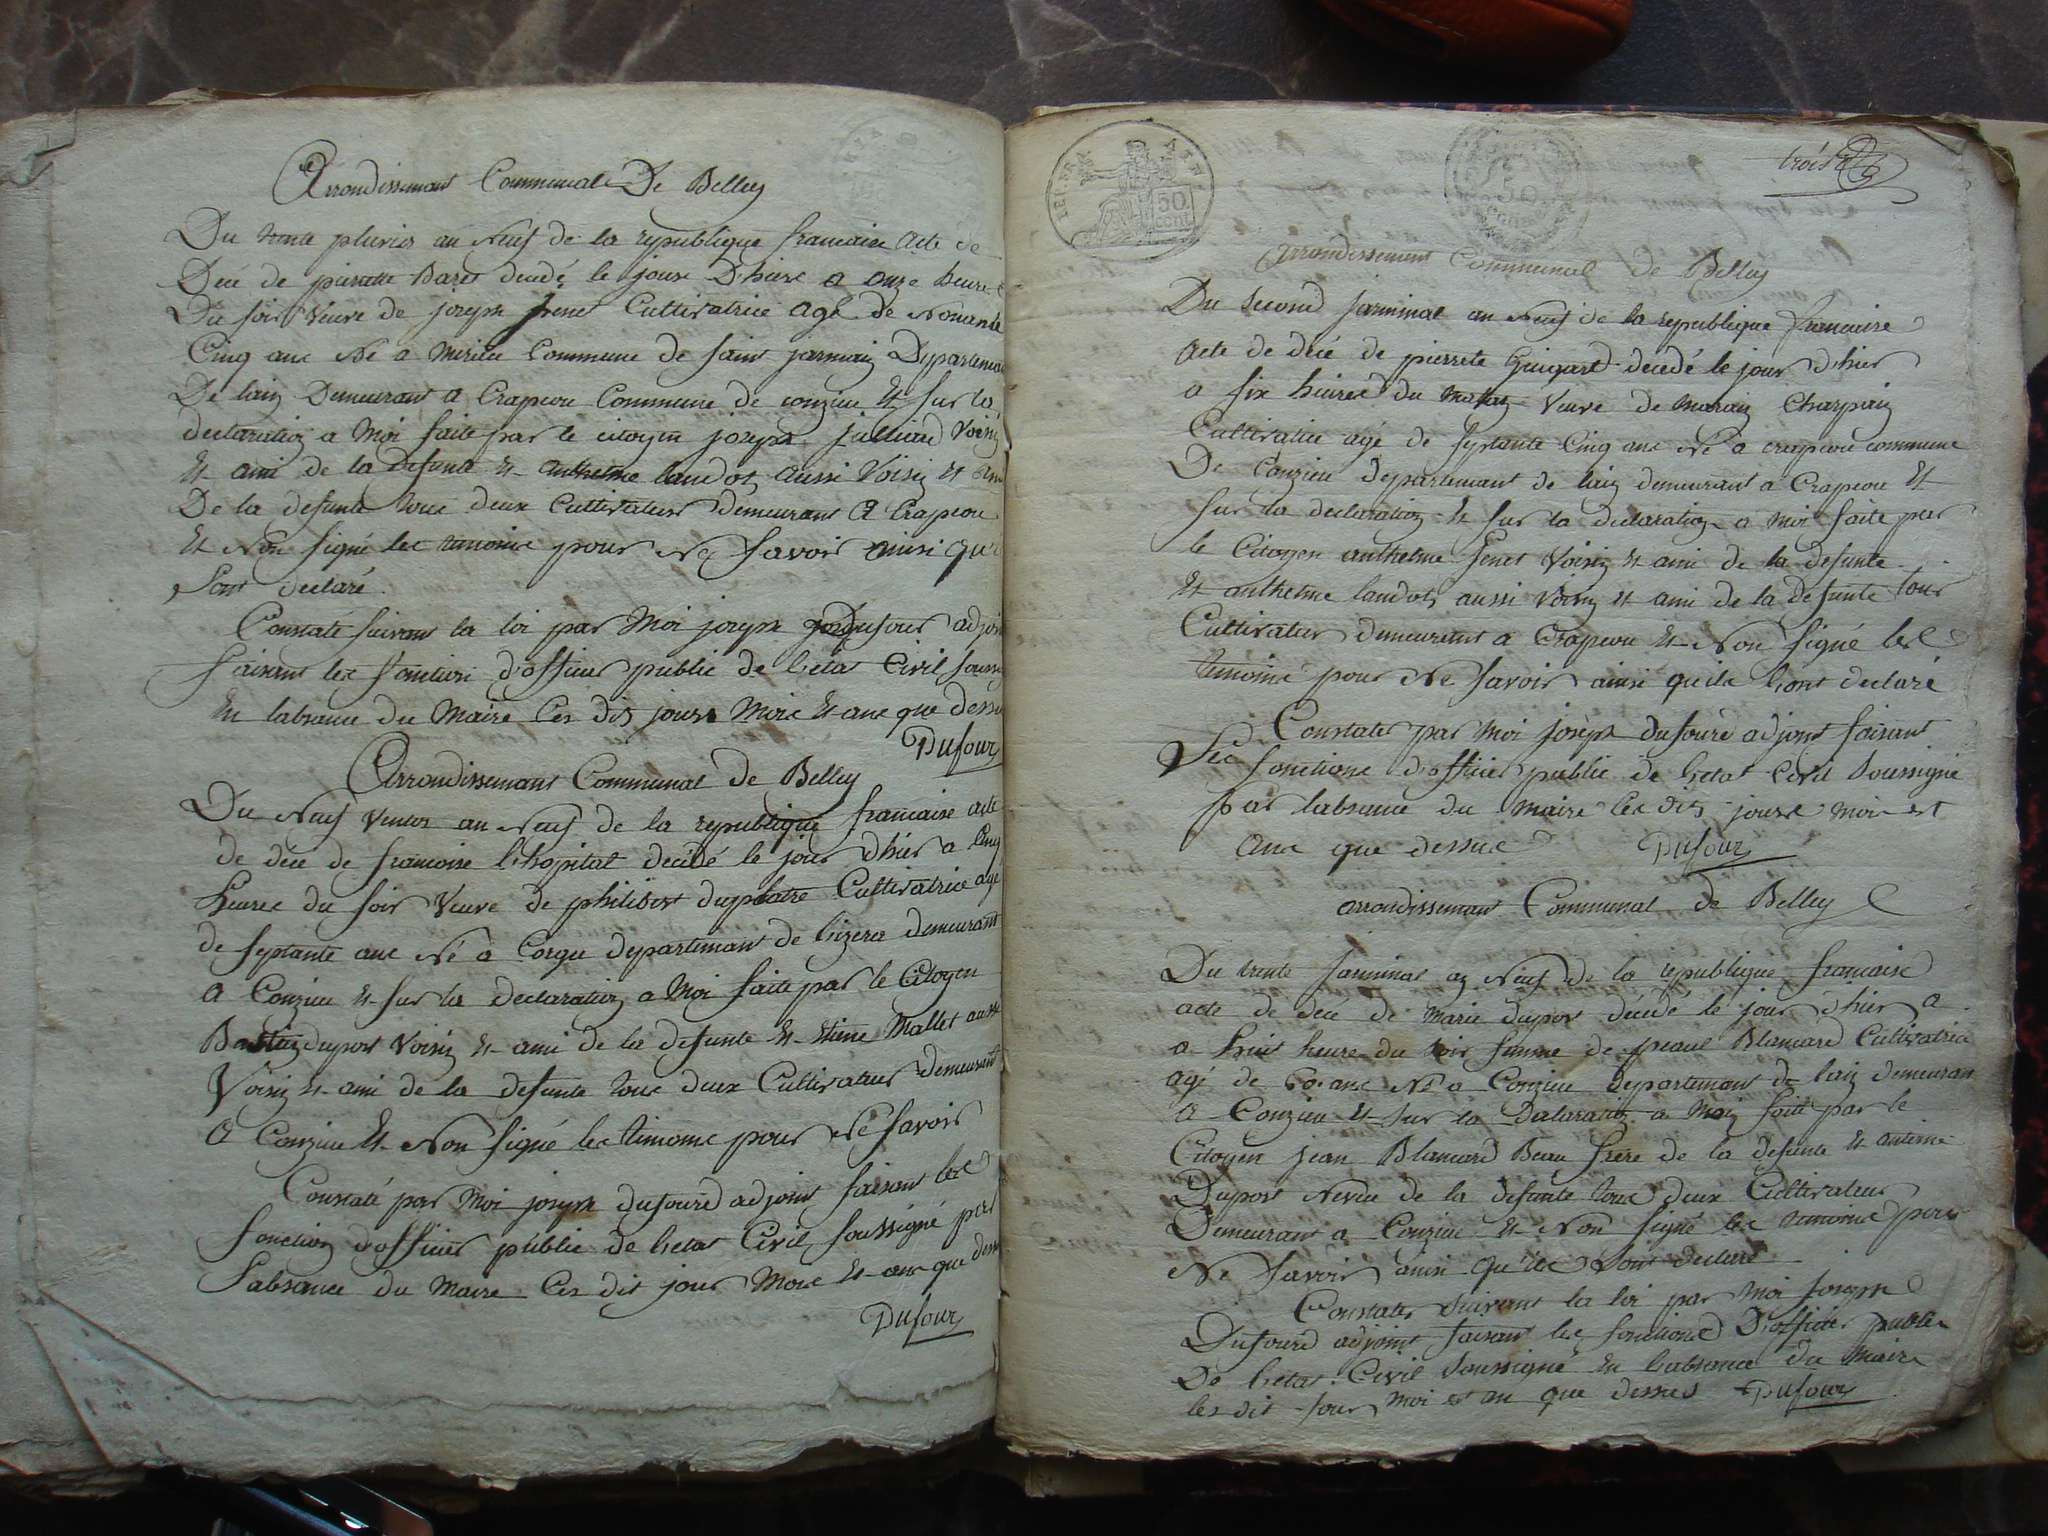 Arrondissemant Communal De Belley
Du trente pluvios an Neuf de la republique francaise acte de
Décé de pierrette Baret decedé le jour D'hiere a onze heure
Du soir Veuve de joseph fenet Cultivatrice agé de Nonante
Cinq anc Né a Commune de saint jarmain Departemant
De lain Demeurant a Crapeou Commune de conzieu Et sur la
declaration a Moi faite par le citoyen joseph julliand Voisin
Et ami de la defunte et anthelme landot aussi Voisin et ami
De la defunte touc deux Cultivateur demeurant a Crapeou
Et Non signé lec timoinc pour Ne savoir ainsi que
sont declaré.
Constaté suivant la loi par Moi joseph Dufour adjoint
faisant lec fonction d'officier public de letat Civil soussigné
En labsance du Maire lec dit jours Moic Et anc que dessu
Dufour
Arrondissemant Communal de Belley
Du Neuf Ventos an Neuf de la republique francaise acte
de déce de francoise lhopital decédé le jour dhier a Cinq
heurec du soir Veuve de philibert duplatre Cultivatrice agé
de septante anc Né a Corgu departemant de lizere demeurant
a Conzieu Et sur la declaration a Moi faite par le Citoyen
Bastin dupont Voisin et ami de la defunte et Etine Mallet aussi
Voisin et ami de la defunte touc deux Cultivateur demeurant
a Conzieu Et Non signé lec timoinc pour Ne savoir
Constaté par Moi joseph dufourd adjoint faisant lec
fonction d'officier public de letat Civil soussigné par
labsance du Maire lec dit jour Moic Et anc que dessu
Dufour
troisE
REP. FRA. 50 cent
50
arrondissemant Communal de Belley
Du second jarminal an Neuf de la republique francaise
acte de décé de pierrete Guigard decedé le jour d'hier
a six heurec du matin Veuve de Marin Charpin
Cultivatrice agé de septante Cinq anc Né a crapeou commune
De Conzieu departemant de lain demeurant a Crapeou Et
sur la declaration Et sur la declaration a Moi faite par
le Citoyen anthelme fenet Voisin Et ami de la defunte
Et anthelme landot aussi Voisin Et ami de la defunte touc
Cultivateur demeurant a Crapeou Et Non signé lec
timoinc pour Ne savoir ainsi quilc lont declaré
Constater par Moi joseph dufourd adjoint faisant
lec fonctionc d'officier public de letat Civil soussigné
par labsance du Maire lec dit jourc Moic et
anc que dessuc Dufour
arrondissemant Communal de Belley
Du trente jarminal an Neuf de la republique francaise
acte de déce de Marie dupont decédé le jour d'hier a
a huit heure du soir famme de peaul Blancard Cultivatrice
agé de 60 anc Né a Conzieu departemant de lain demeurant
a Conzieu Et sur la Declaration a Moi faite par le
Citoyen jean Blancard Beau frere de la defunte Et antoine
Dupont Neveu de la defunte touc deux Cultivateur
Demeurant a Conzieu Et Non signé lec timoinc pour
Ne savoir ainsi qu'ilc Lont declaré
Constater suivant la loi par Moi joseph
Dufourd adjoint faisant lec fonctionc D'officier public
De letat Civil soussigné En labsance du Maire
lec dit jour Moi et an que dessus Dufour